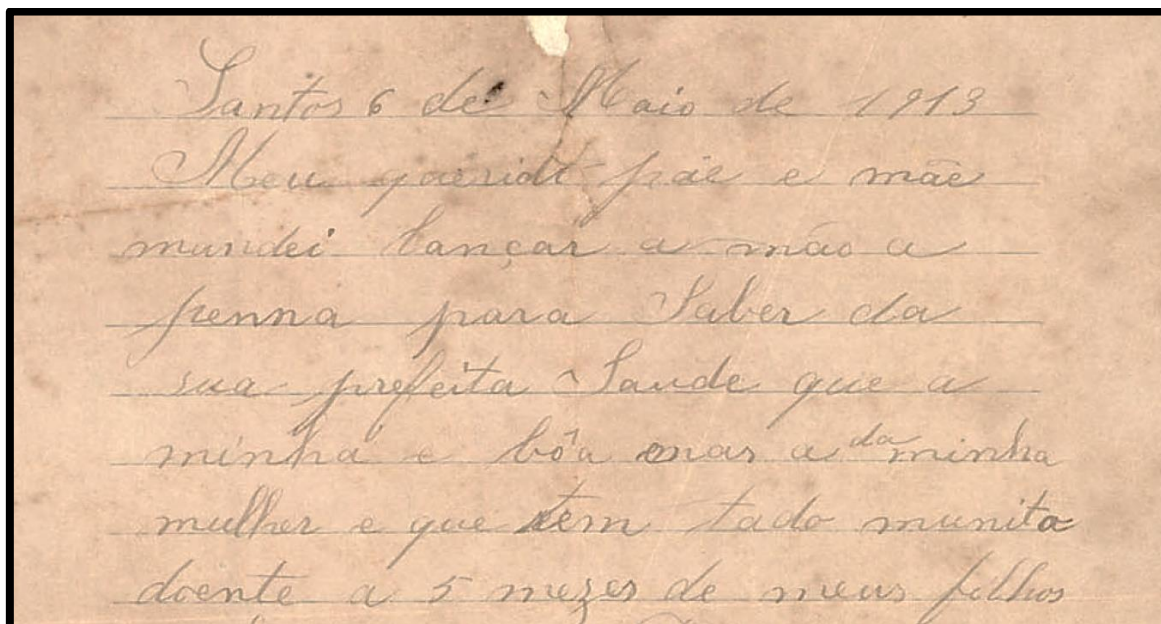 Santos 6 de Maio de 1913
Meu querido páe e mãe
mandei lançar a mão a
penna para Saber da
sua prefeita Saude que a
minha é bôa mas a da minha
mulher e que tem tado munito
doente a 5 mezes de meus filhos